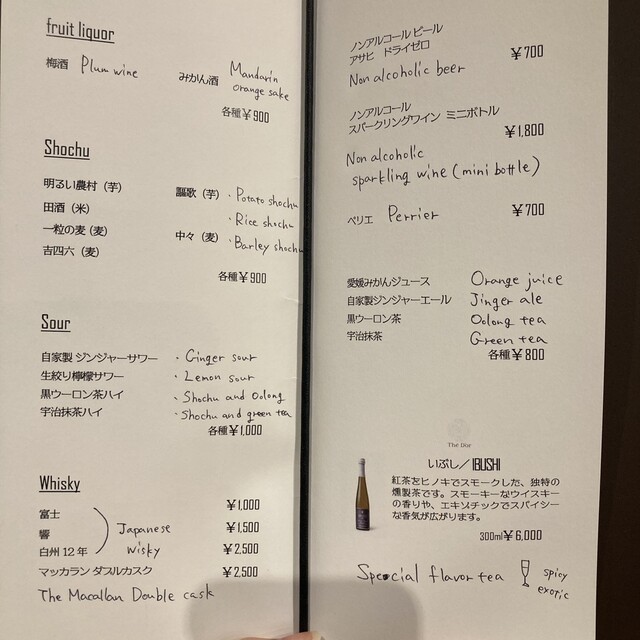 fruit liquor
梅酒 Plum wine
みかん酒 Mandarin
orange sake
各種¥900
Shochu
明るい農村（芋）
謳歌（芋）
・Potato shochu
田酒（米）
・Rice shochu
一粒の麦（麦）
中々（麦）
・Barley shochu
吉四六（麦）
各種¥900
Sour
自家製 ジンジャーサワー ・Ginger sour
生絞り檸檬サワー ・Lemon sour
黒ウーロン茶ハイ ・Shochu and Oolong
宇治抹茶ハイ ・Shochu and green tea
各種¥1,000
Whisky
富士 ¥1,000
響 ¥1,500
白州 12 年 ¥2,500
Japanese
wisky
マッカラン ダブルカスク ¥2,500
The Macallan Double cask
ノンアルコール ビール
アサヒ ドライゼロ ¥700
Non alcoholic beer
ノンアルコール
スパークリングワイン ミニボトル
¥1,800
Non alcoholic
sparkling wine (mini bottle)
ペリエ Perrier ¥700
愛媛みかんジュース Orange juice
自家製ジンジャーエール Jinger ale
黒ウーロン茶 Oolong tea
宇治抹茶 Green tea
各種¥800
いぶし／IBUSHI
紅茶をヒノキでスモークした、独特の
燻製茶です。スモーキーなウイスキー
の香りや、エキゾチックでスパイシー
な香気が広がります。
300ml¥6,000
Special flavor tea
spicy
exotic